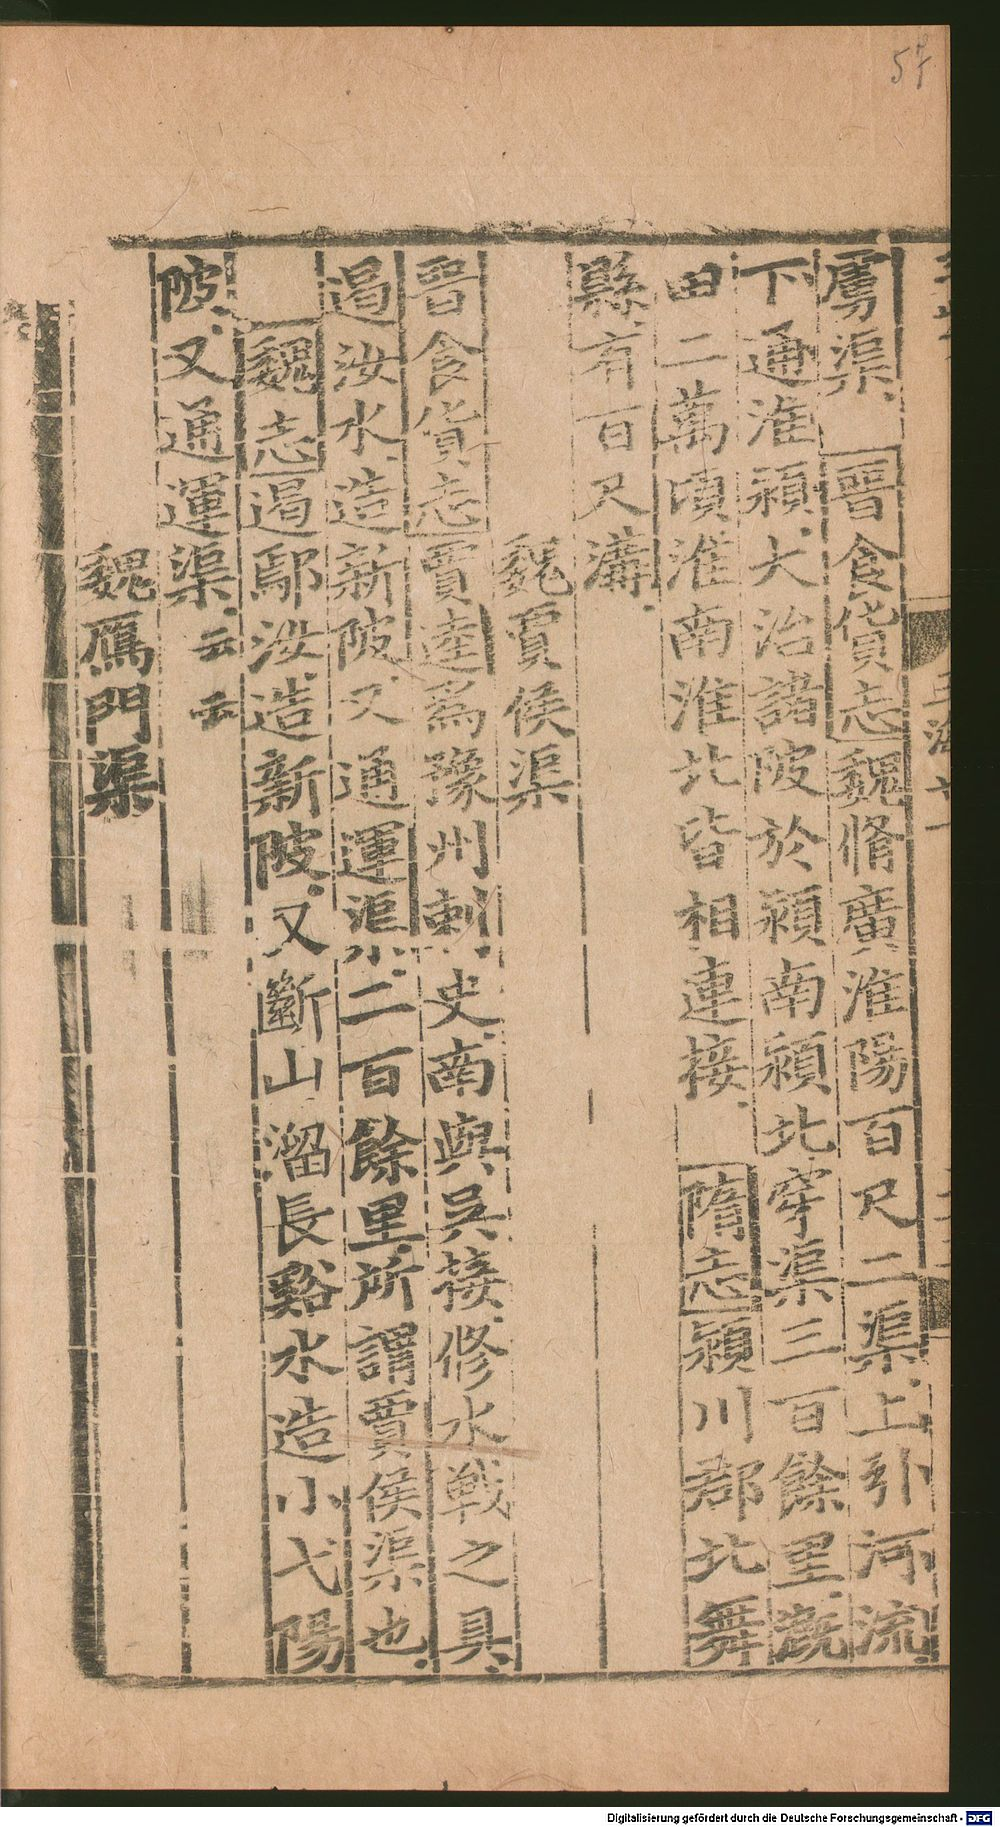 57
渠晋食貨志魏脩廣淮陽百尺二渠上引河流
下通淮潁大治諸陂於潁南潁北穿渠三百餘里漑
田二萬頃淮南淮北皆相連接隋志潁川郡北舞
縣有百尺溝
魏賈侯渠
晋食貨志賈逵爲豫州刺史南與吳接修水戰之具
遏汝水造新陂又通運渠二百餘里所謂賈侯渠也
魏志遏鄢汝造新陂又斷山溜長谿水造小弋陽
陂又通運渠云云
魏鴈門渠
Digitalisierung gefördert durch die Deutsche Forschungsgemeinschaft - DFG